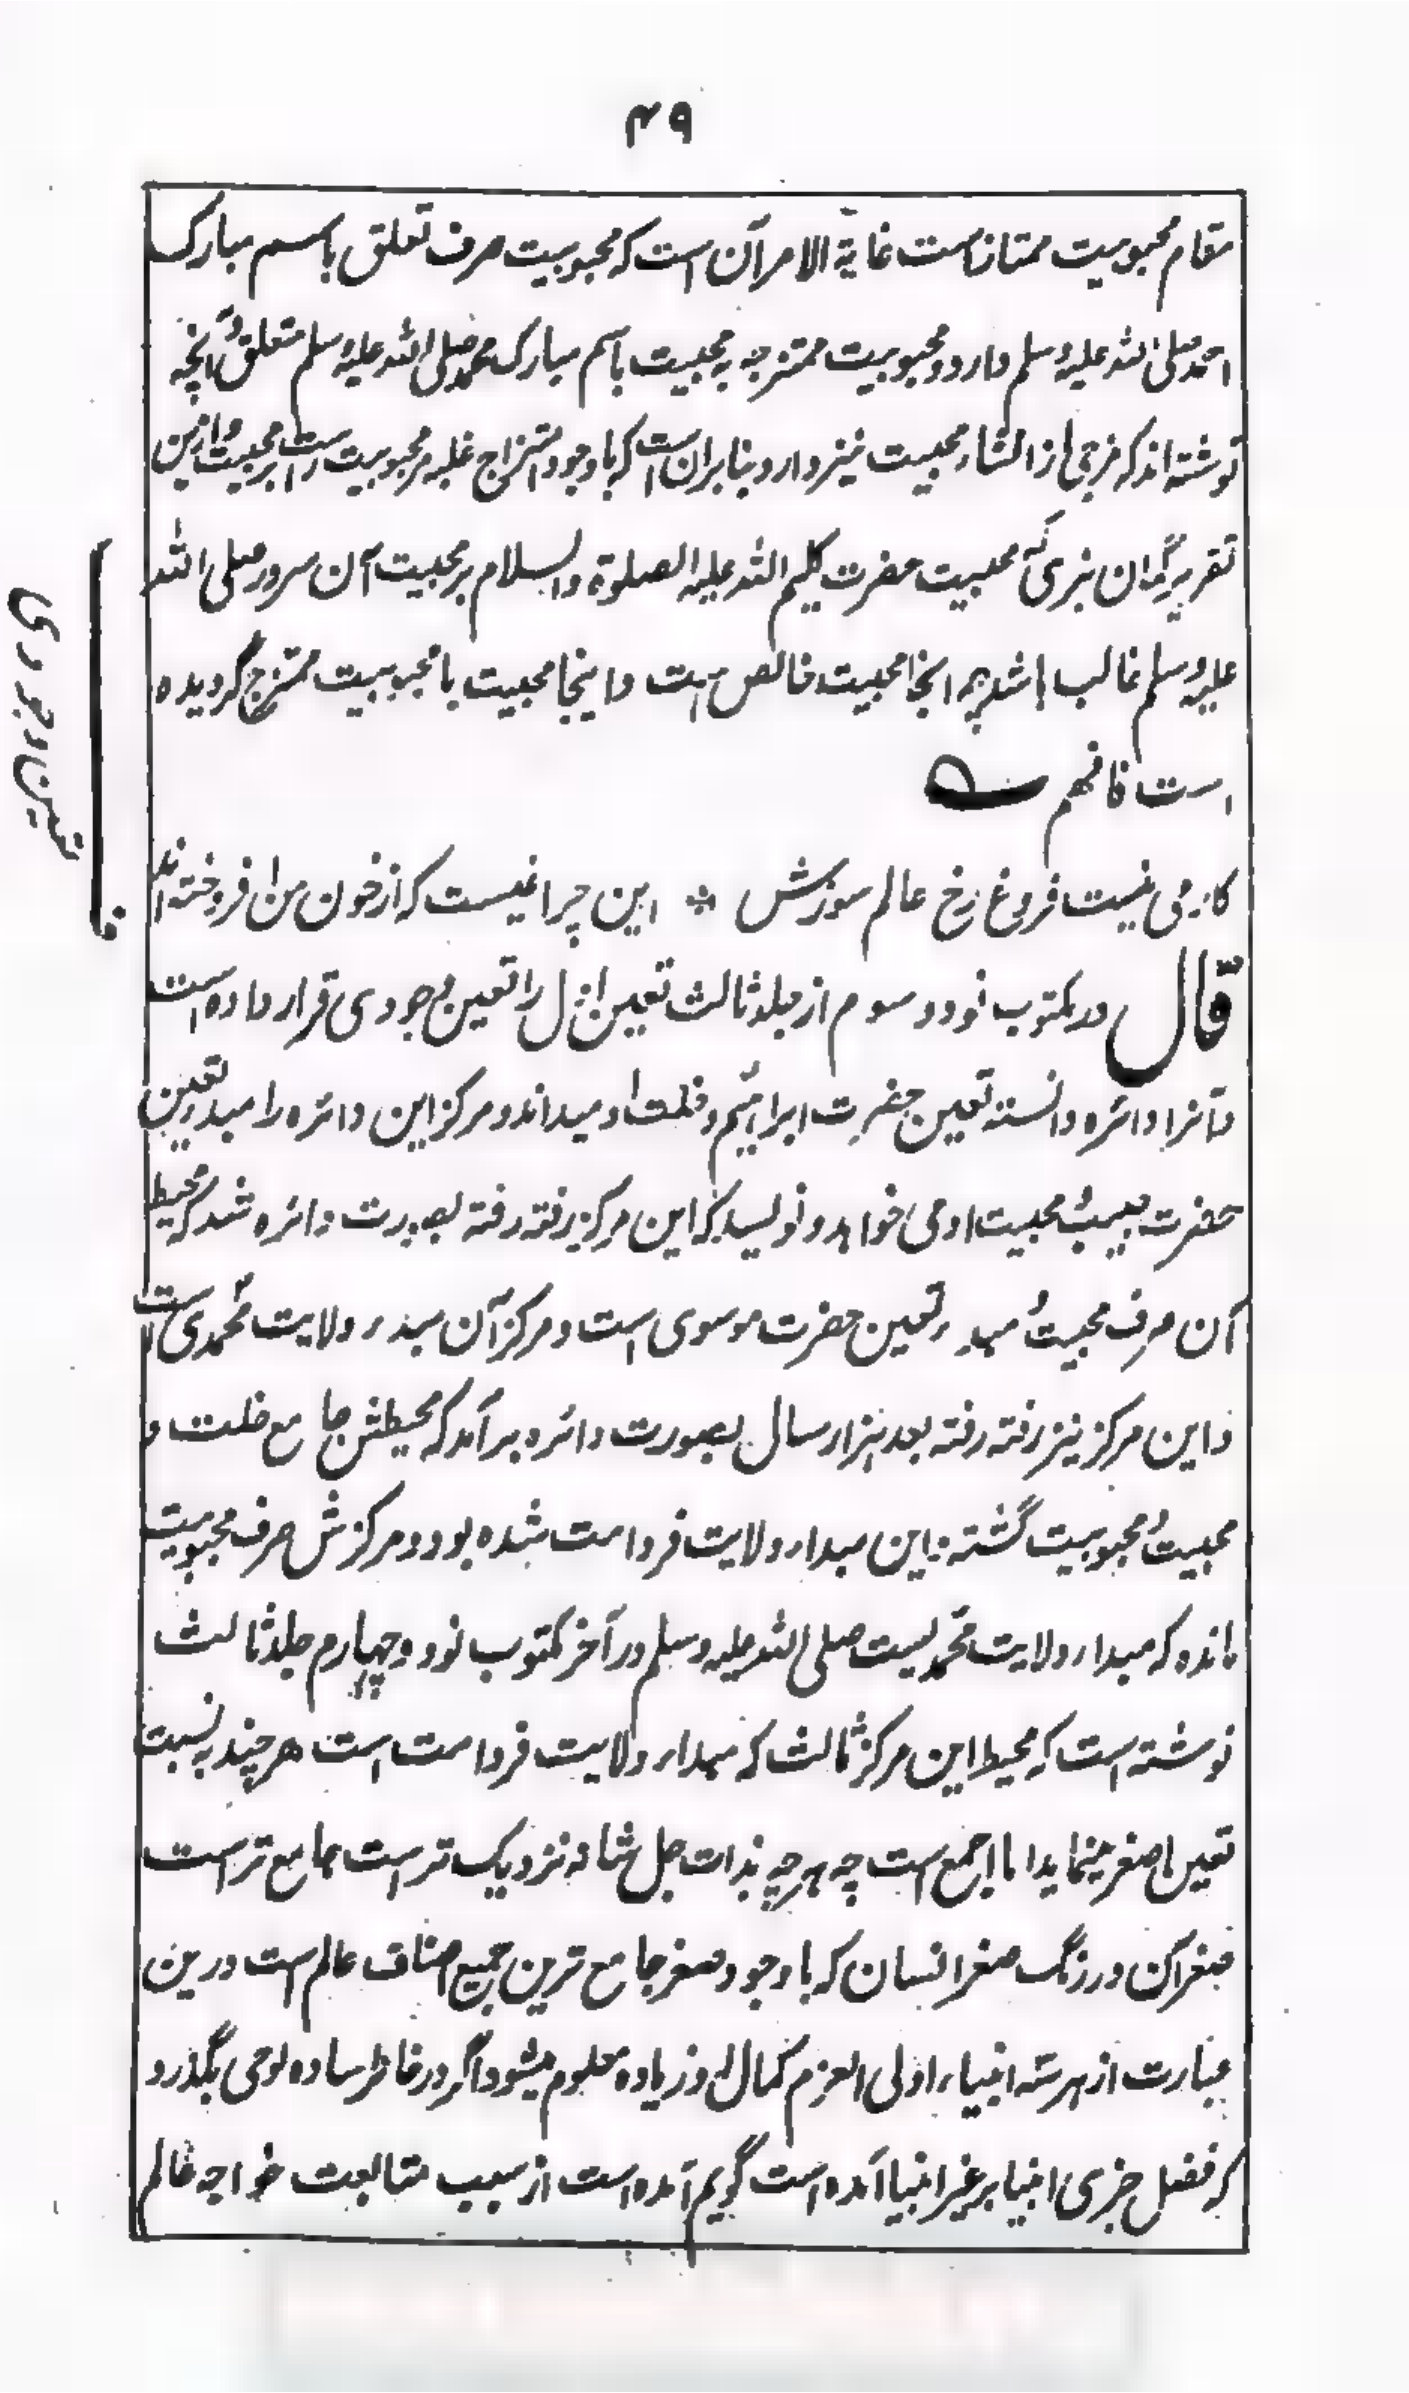 ۴۹
مقام محبوبیت ممتاز است غایة الامر آن است که محبوبیت صرف تعلق باسم مبارک
احمد صلی الله علیه وسلم دارد و محبوبیت ممتزجه به محبیت باسم مبارک محمد صلی الله علیه وسلم متعلق و آنچه
نوشته اند که مزجی از محبیت نیز دارد بنا بران است که با وجود امتزاج غلبه مر محبوبیت راست بر محبیت و ازین
تقریر گمان نبری که محبیت حضرت کلیم الله علیه الصلوة والسلام بر محبیت آن سرور صلی الله
علیه وسلم غالب باشد چه آنجا محبیت خالص است و اینجا محبیت با محبوبیت ممتزج گردیده
است فافهم
کار می نیست فروغ رخ عالم سوزش * این چراغیست که از خون من افروخته اند
قال در مکتوب نود و سوم از جلد ثالث تعین اول را تعین وجودی قرار داده است
و آنرا دائره دانسته تعین حضرت ابراهیم و خلت او میداند و مرکز این دائره را مبدء تعین
حضرت حبیب و محبیت او می خواهد و نویسد که این مرکز رفته رفته بصورت دائره شد که محیط
آن صرف محبیت و مبدء تعین حضرت موسوی است و مرکز آن مبدء ولایت محمدی است
و این مرکز نیز رفته رفته بعد هزار سال بصورت دائره برآمد که محیطش جامع خلت و
محبیت و محبوبیت گشته این مبداء ولایت فرد امت شده بود و مرکزش صرف محبوبیت
مانده که مبداء ولایت محمدیست صلی الله علیه وسلم در آخر مکتوب نود و چهارم جلد ثالث
نوشته است که محیط این مرکز ثالث که مبداء ولایت فرد امت است هر چند به نسبت
تعین اصغر مینماید اما اجمع است چه هر چه بذات جل شانه نزدیک تر است جامع تر است
صغر آن در رنگ صغر انسان که با وجود صغر جامع ترین جمیع اصناف عالم است درین
عبارت از هر سته انبیاء اولی العزم کمال او زیاده معلوم میشود اگر در خاطر ساده لوحی بگذرد
که فضل جزی انبیا بر غیر انبیا آمده است گویم آمده است از سبب متابعت خواجه عالم
تعین وجودی